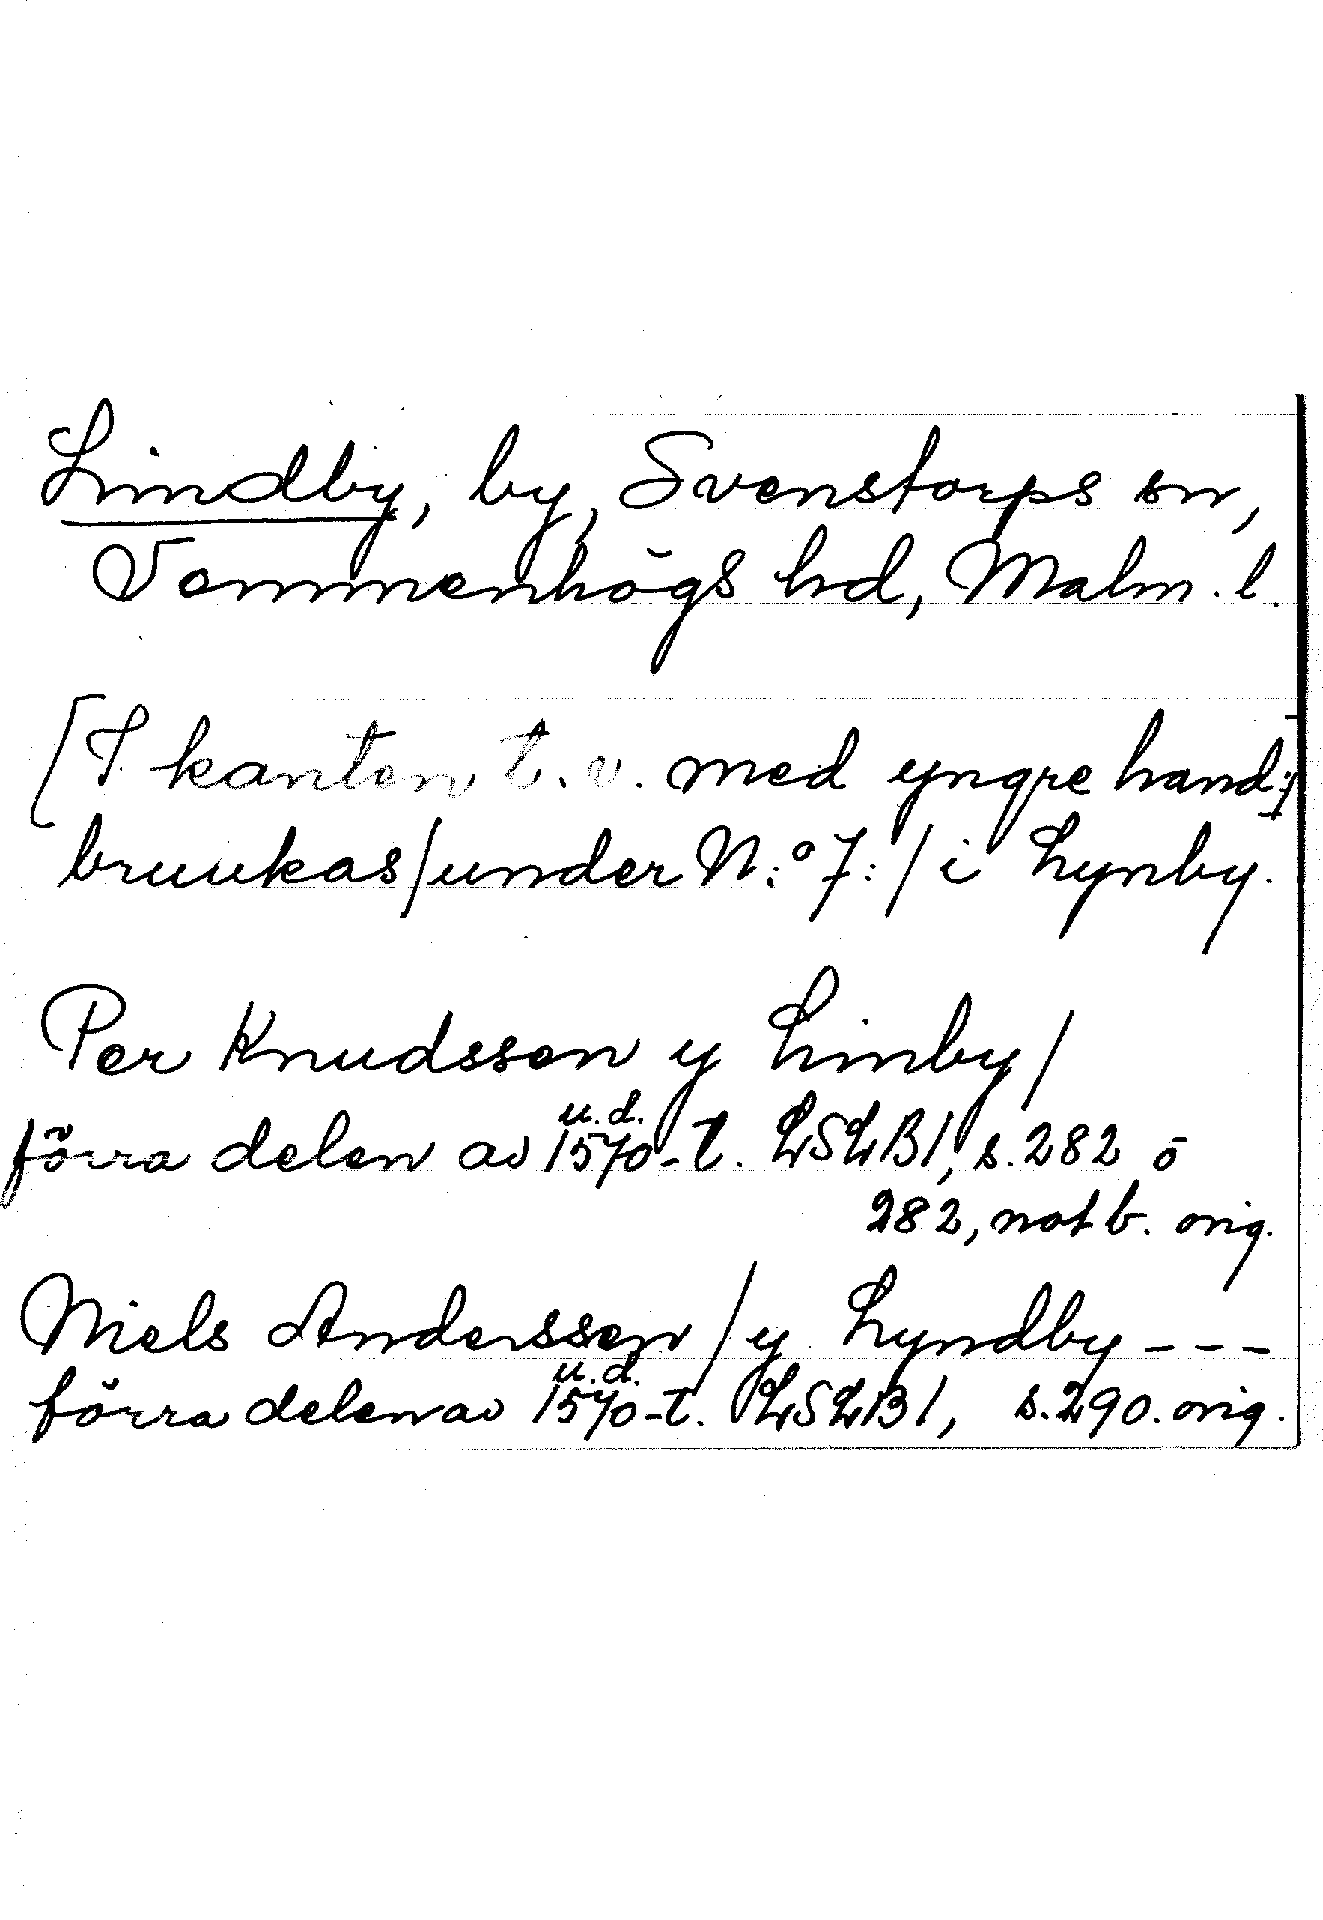 Lindby, by, Svenstorps sn,
Vemmenhögs hd, Malm. l.
[I kanten t.v. med yngre hand:]
bruukas/under N:o 7:/ i Lynby.
Per Knudssen y Limby/
u.d.
förra delen av 1570-t. LSLB1, s. 282 o
282, not b. orig.
Niels Anderssen/y Lyndby ---
u.d.
förra delen av 1570-t. LSLB1, s. 290. orig.